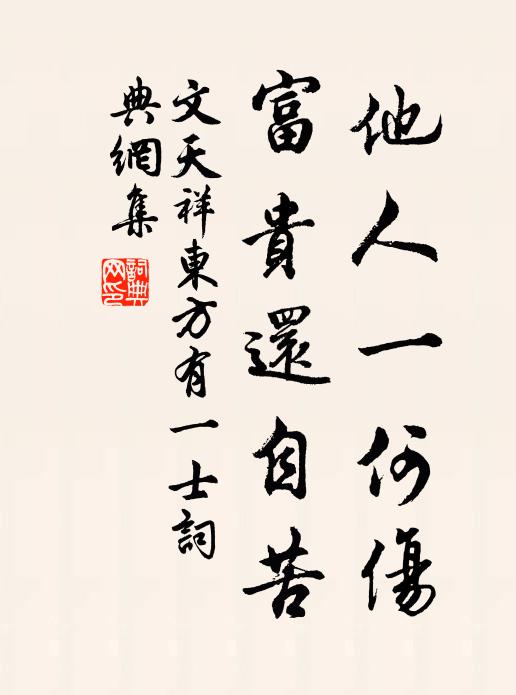 他人一何傷
富貴還自苦
文天祥東方有一士詞
典網集
詞典
网印